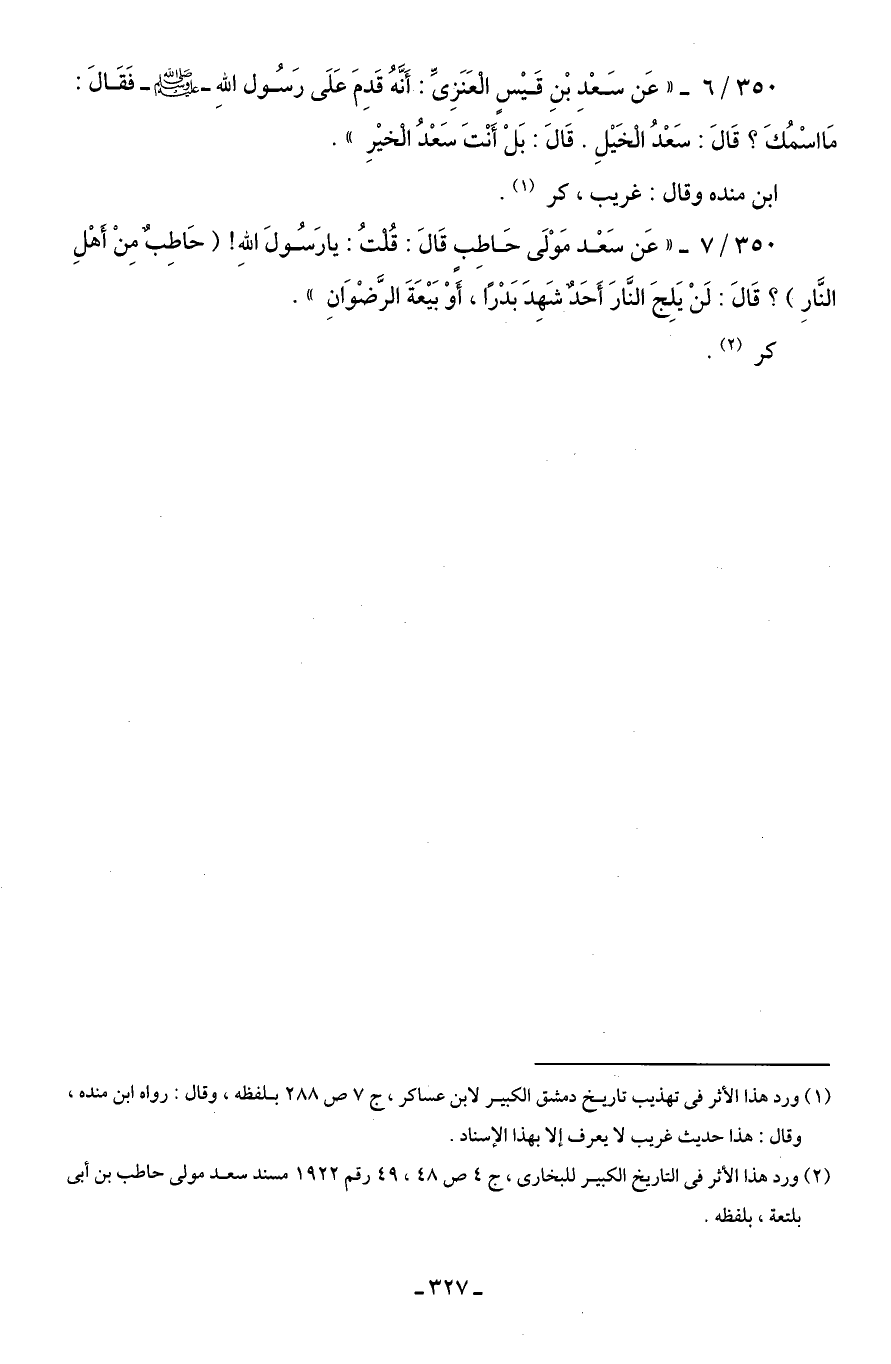 ٦/٣٥٠ ـ « عَن سَعْدِ بْنِ قَيْسٍ الْعَنَزِىِّ : أَنَّهُ قَدِمَ عَلَى رَسُولِ اللهِ ـ ﷺ ـ فَقَالَ :
مَااسْمُكَ ؟ قَالَ : سَعْدُ الْخَيْلِ . قَالَ : بَلْ أَنْتَ سَعْدُ الْخيْرِ » .
ابن منده وقال : غريب ، كر (١) .
٧/٣٥٠ ـ « عَن سَعْدٍ مَوْلَى حَاطِبٍ قَالَ : قُلْتُ : يارَسُولَ اللهِ! ( حَاطِبٌ مِنْ أَهْلِ
النَّارِ ) ؟ قَالَ : لَنْ يَلِجَ النَّارَ أَحَدٌ شَهِدَ بَدْرًا ، أَوْ بَيْعَةَ الرِّضْوَانِ » .
كر (٢) .
(١) ورد هذا الأثر فى تهذيب تاريخ دمشق الكبير لابن عساكر ، ج ٧ ص ٢٨٨ بلفظه ، وقال : رواه ابن منده ،
وقال : هذا حديث غريب لا يعرف إلا بهذا الإسناد .
(٢) ورد هذا الأثر فى التاريخ الكبير للبخارى ، ج ٤ ص ٤٨ ، ٤٩ رقم ١٩٢٢ مسند سعد مولى حاطب بن أبى
بلتعة ، بلفظه .
ـ ٣٢٧ ـ